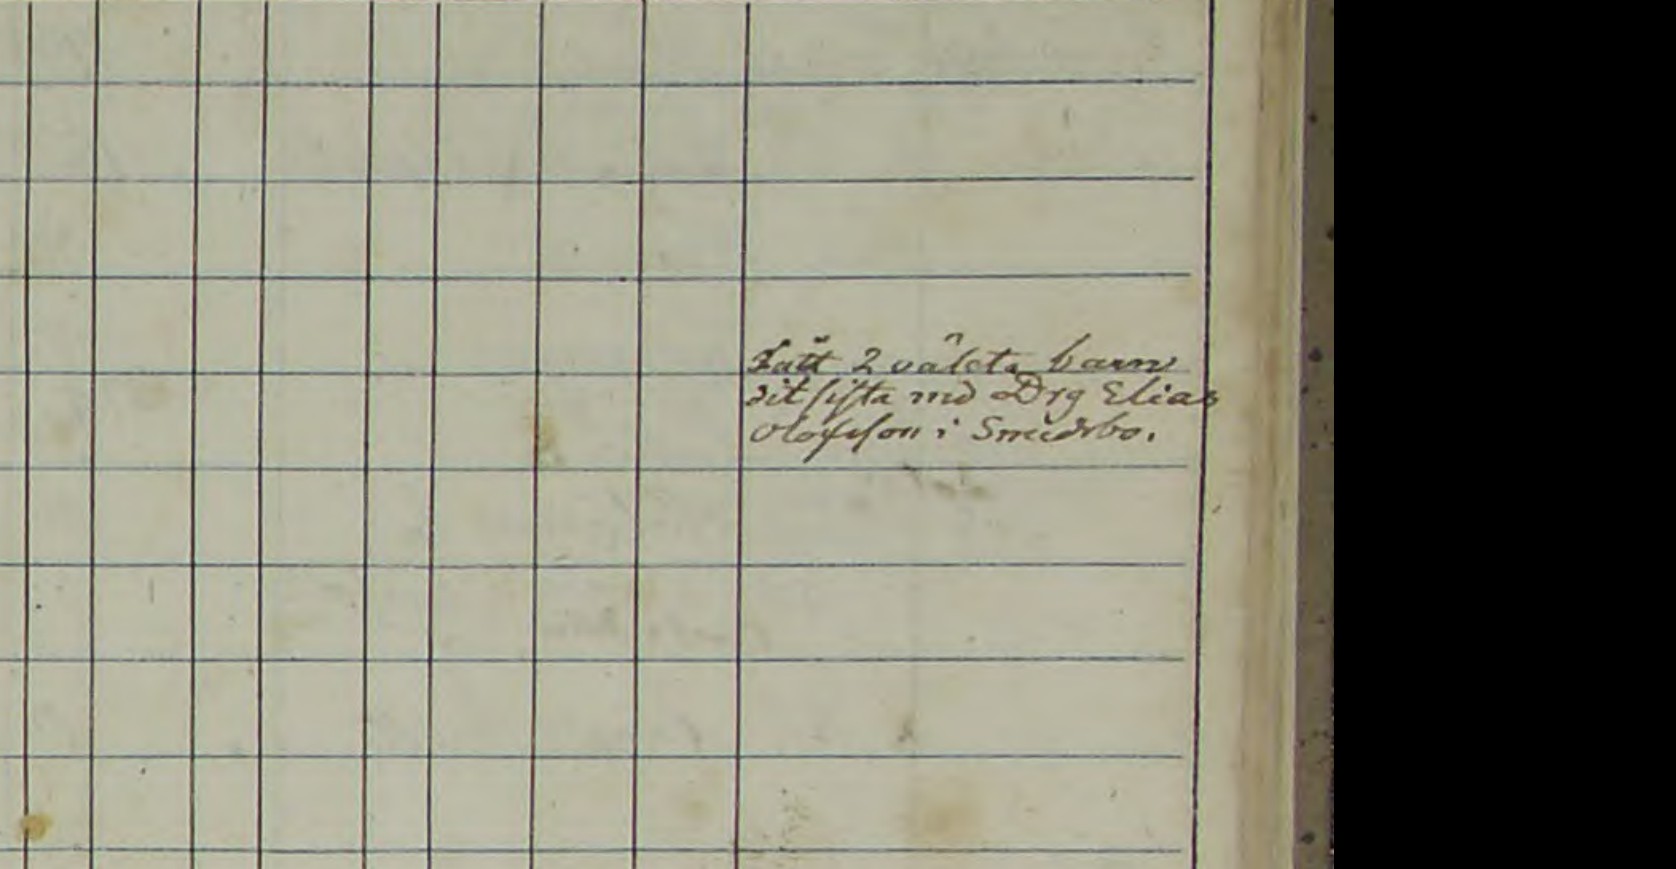 Fått 2 oäkta barn
dit sista md Drg Elias
Olofsson i Smedsbo.